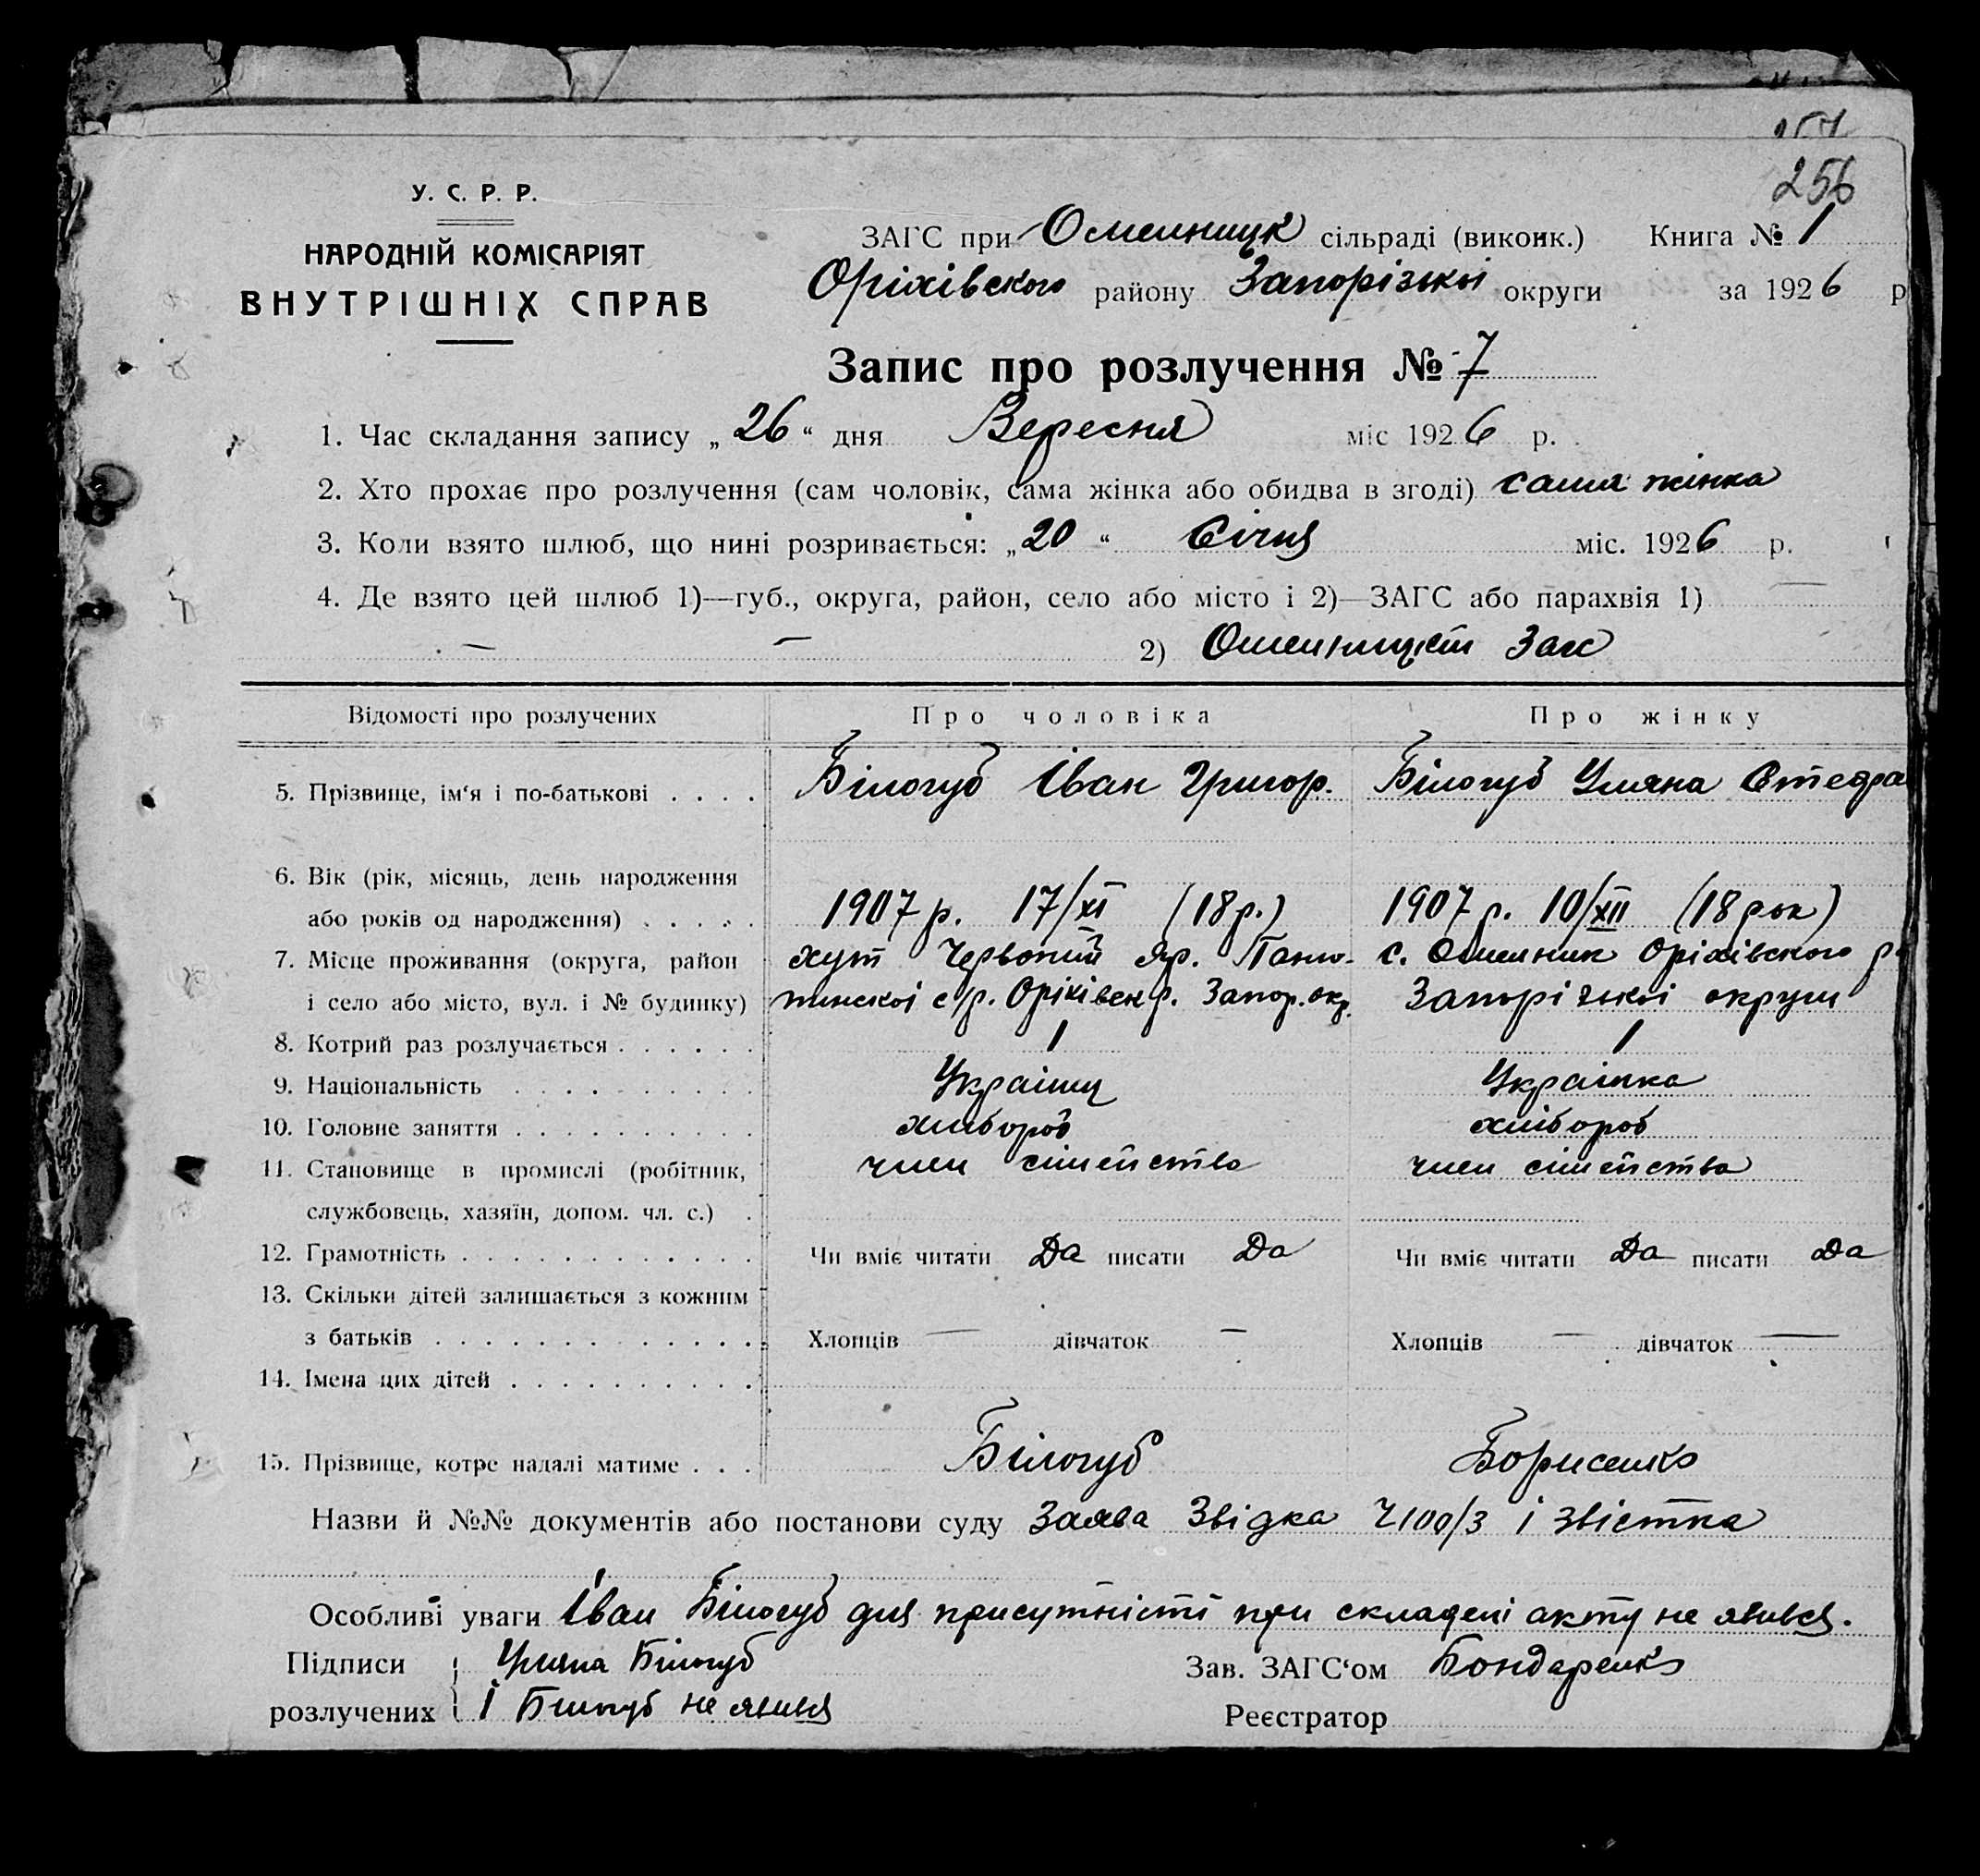 256
У. С. Р. Р.
НАРОДНІЙ КОМІСАРІЯТ
ВНУТРІШНІХ СПРАВ
ЗАГС при Омельницк сільраді (викопк.) Книга № 1
Оріхівского району Запорізької округи за 1926 р
Запис про розлучення № 7
1. Час складання запису „26“ дня Вересня міс 1926 р.
2. Хто прохає про розлучення (сам чоловік, сама жінка або обидва в згоді) сама жінка
3. Коли взято шлюб, що нині розривається: „20“ Січня міс. 1926 р.
4. Де взято цей шлюб 1)—губ., округа, район, село або місто і 2)—ЗАГС або парахвія 1) —
— — 2) Загс
Відомості про розлучених Про чоловіка Про жінку
5. Прізвище, ім'я і по-батькові . . . . Білогуб Іван Григор. Білогуб Уляна
6. Вік (рік, місяць, день народження
або років од народження) . . . . . 1907 р. 17/XI (18 р.) 1907 р. 10/XII (18 рок)
7. Місце проживання (округа, район хут Червоний Яр. с. Омельник Оріхівского р
і село або місто, вул. і № будинку) с/р. Запор. окр. Запорізької округи
8. Котрий раз розлучається . . . . . . 1 1
9. Національність . . . . . . . . . . Українц Українка
10. Головне заняття . . . . . . . . . . хлібороб хлібороб
11. Становище в промислі (робітник, член сімейства член сімейства
службовець, хазяїн, допом. чл. с.) .
12. Грамотність . . . . . . . . . . . . . Чи вміє читати Да писати Да Чи вміє читати Да писати Да
13. Скільки дітей залишається з кожним
з батьків . . . . . . . . . . . . . . Хлопців — дівчаток — Хлопців — дівчаток —
14. Імена цих дітей . . . . . . . . . .
15. Прізвище, котре надалі матиме . . . Білогуб Борисенко
Назви й №№ документів або постанови суду Заява Звідка Ч 100/3 і звістка
Особливі уваги Іван Білогуб для присутністі при складені акту не явився.
Підписи Уляна Білогуб Зав. ЗАГС'ом Бондаренко
розлучених І Білогуб не явився Реєстратор